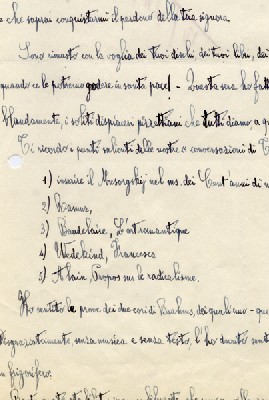 e che saprai conquistarmi il perdono della tua signora.
Sono rimasto con la voglia dei tuoi dischi, dei tuoi libri, dei
quando ce li potremo godere in santa pace! - Questa sera ho fatto
blandamente, i soliti dispiaceri pizzettiani che tutti diamo a qu
Ti ricordo i punti salienti delle nostre conversazioni di T
1) inserire il Mussorgskij nel ms. dei Cent'anni di m
2) Ramuz,
3) Baudelaire, L'art romantique
4) Wedekind, Francesca
5) Alain Propos sur le radicalisme.
Ho sentito le prove dei due cori di Brahms, dei quali uno - que
disgraziatamente senza musica e senza testo, l'ho dovuto sent
in frigorifero.